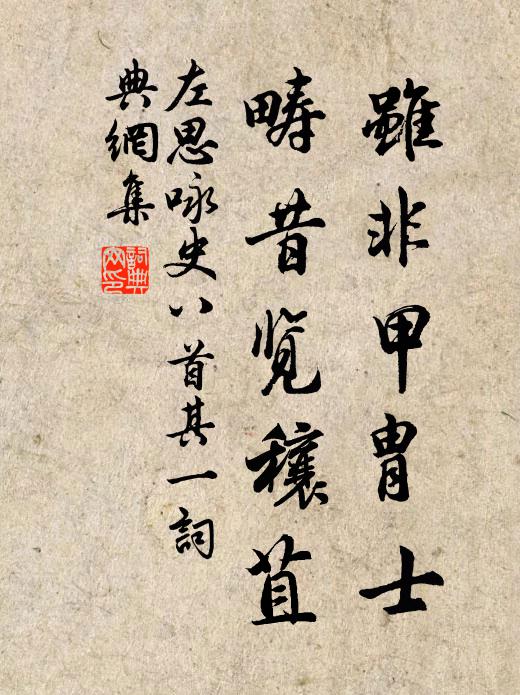 雖非甲胄士
疇昔览穰苴
左思咏史八首其一詞
典網集
詞典